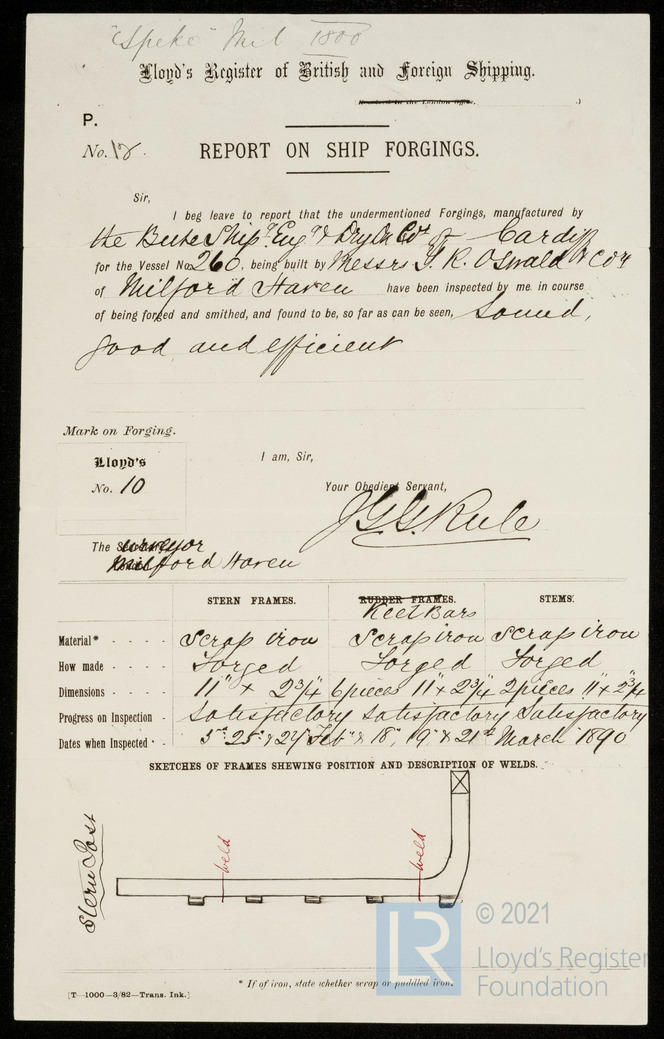 "Speke" Mil 1800
Lloyd's Register of British and Foreign Shipping.
P.
No. 12.
REPORT ON SHIP FORGINGS.
Sir,
I beg leave to report that the undermentioned Forgings, manufactured by
the Bute Ship'g Eng'g & Dry Dk Co'y of Cardiff
for the Vessel No. 260, being built by Messrs T. R. Oswald & Coy
of Milford Haven have been inspected by me in course
of being forged and smithed, and found to be, so far as can be seen, Sound,
good and efficient
Mark on Forging.
Lloyd's
No. 10
I am, Sir,
Your Obedient Servant,
The Surveyor
Milford Haven
STERN FRAMES. RUDDER FRAMES. STEMS.
Keel Bars
Material* - - - - Scrap iron Scrap iron Scrap iron
How made - - - - Forged Forged Forged
Dimensions - - - - 11" x 2 3/4 6 pieces 11" x 2 3/4 2 pieces 11" x 2 3/4
Progress on Inspection - Satisfactory Satisfactory Satisfactory
Dates when Inspected - 5th 25th & 27th Feb'y & 18th, 19th & 21st March 1890
SKETCHES OF FRAMES SHEWING POSITION AND DESCRIPTION OF WELDS.
Stern Post
weld
weld
* If of iron, state whether scrap or puddled iron.
[T—1000—3/82—Trans. Ink.]
LR
© 2021
Lloyd's Register
Foundation